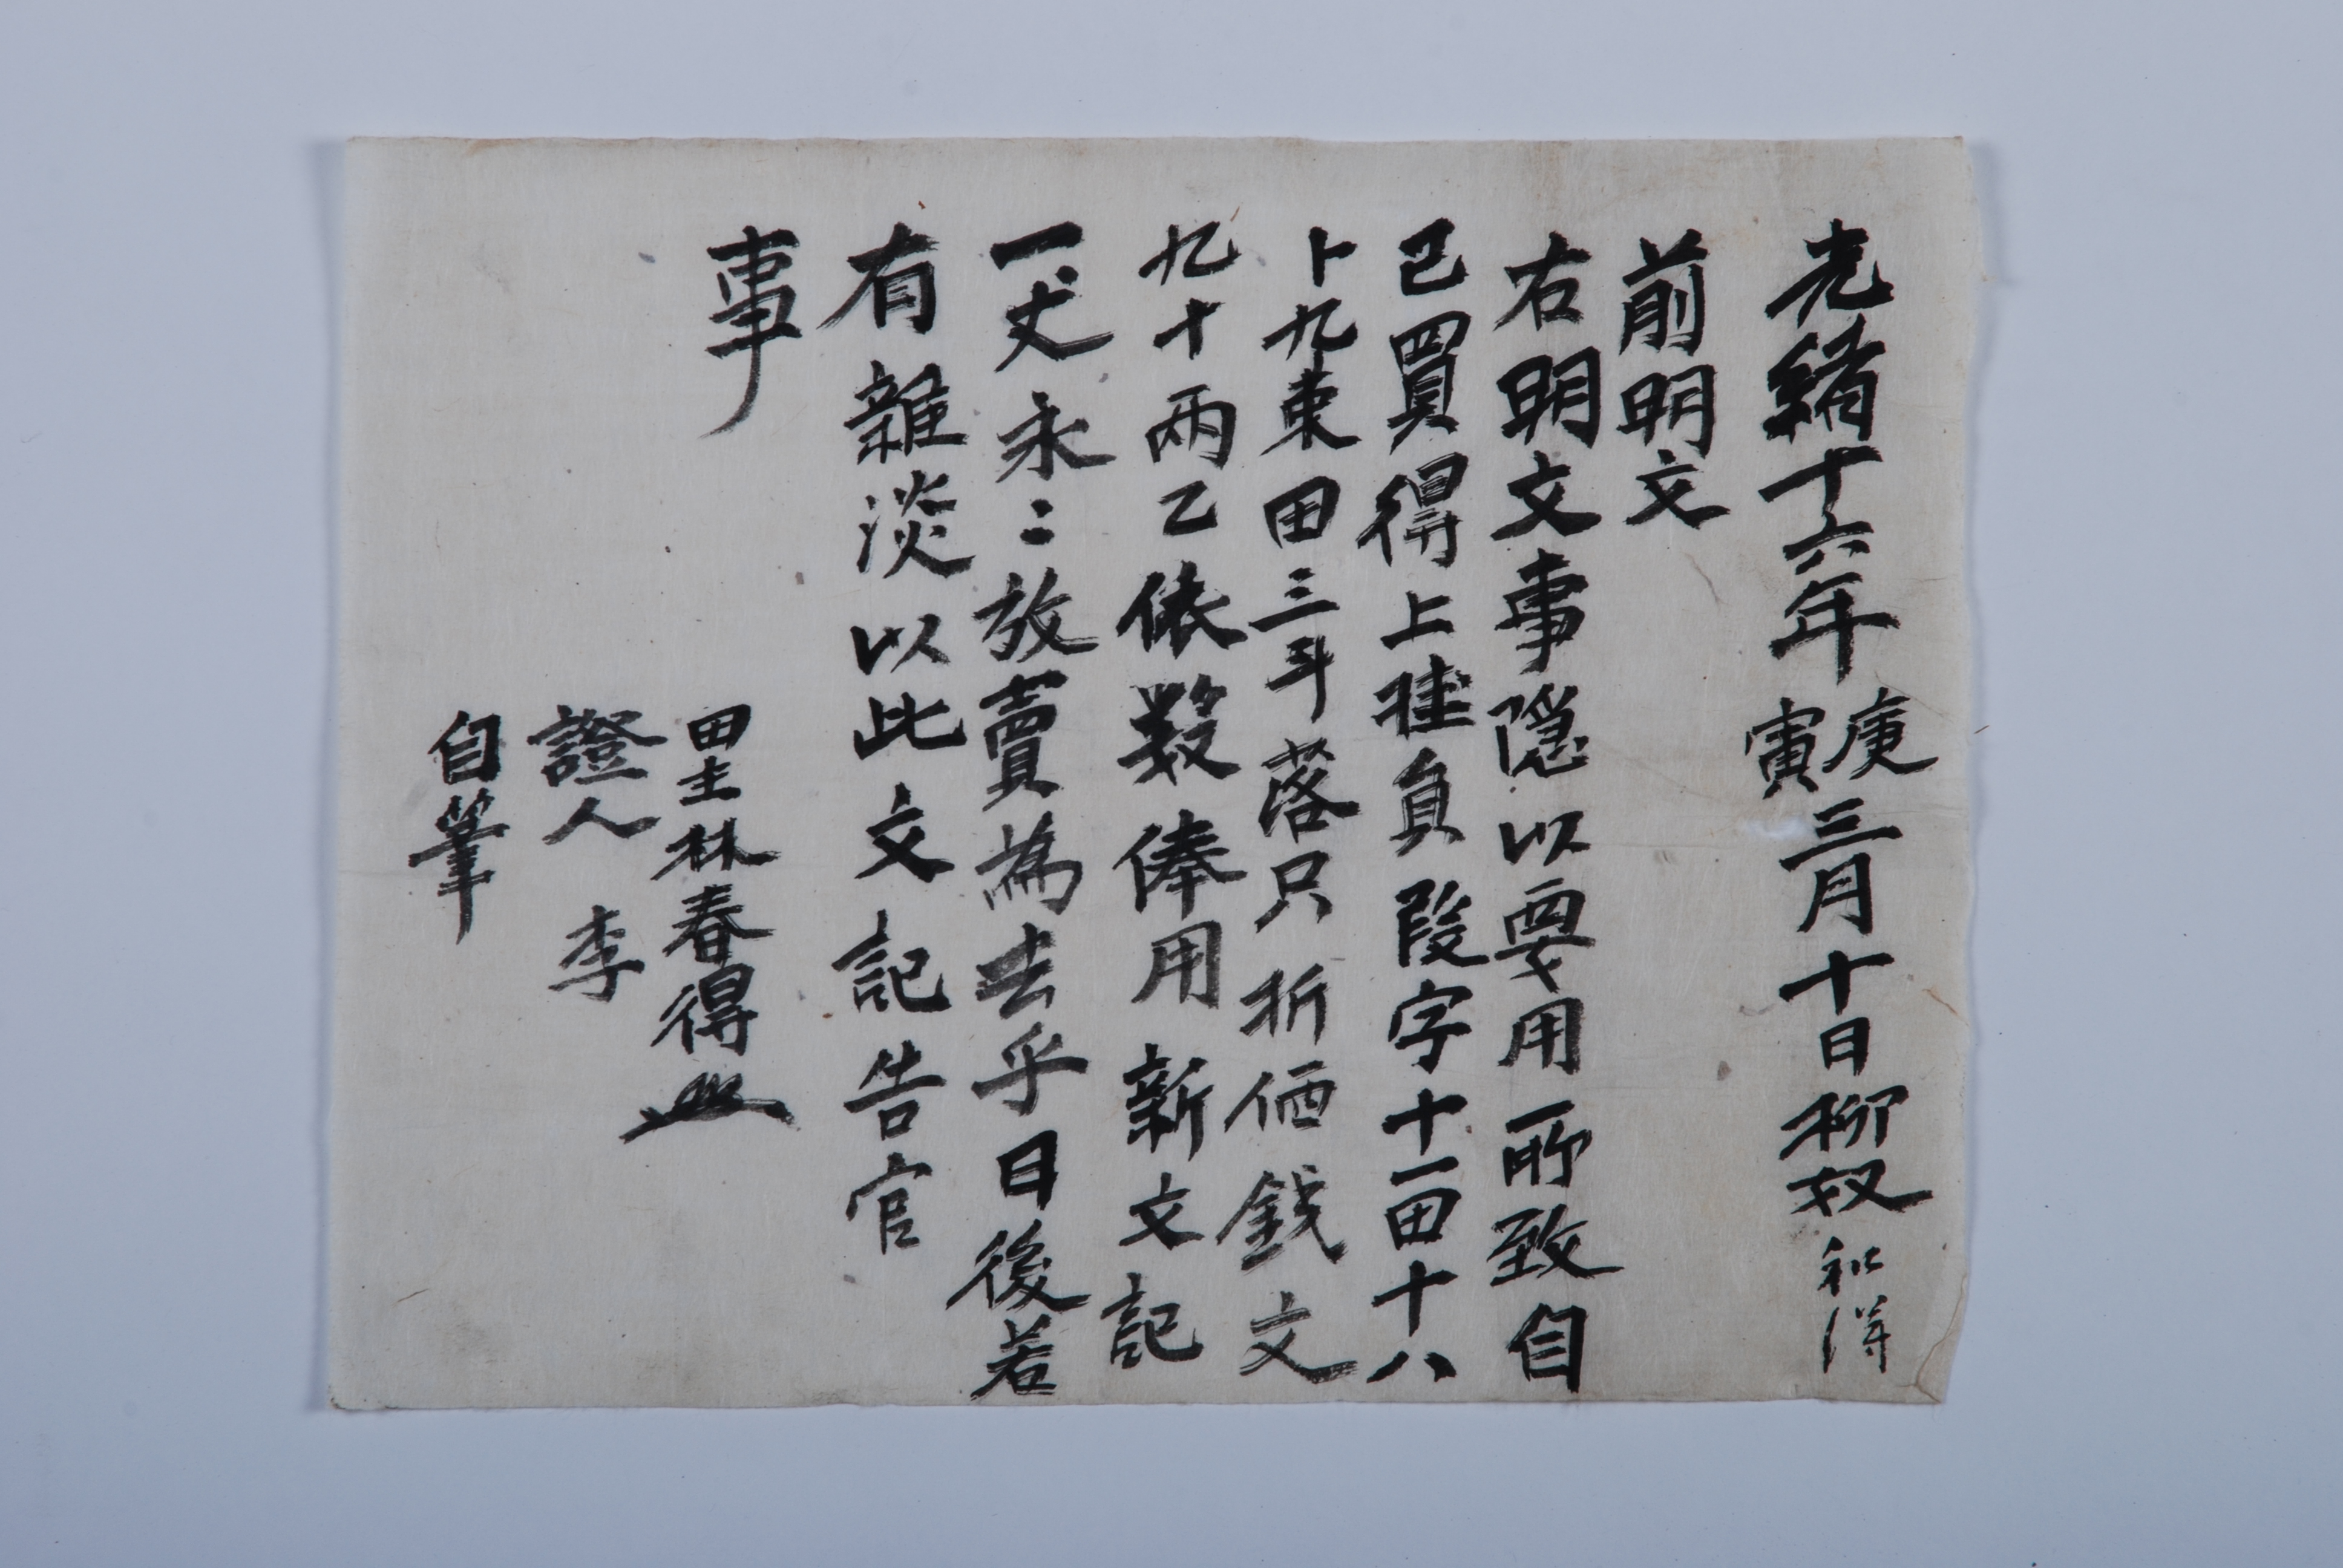 光緖十六年庚寅三月十日柳奴和得
前明文
右明文事隱以要用所致自
己買得上挂員段字十一田十八
卜九束田三斗落只折価錢文
九十兩乙依數俸用新文記
一丈永〻放賣爲去乎日後若
有雜淡以此文記告官
事
田主林春得
證人 李
自筆